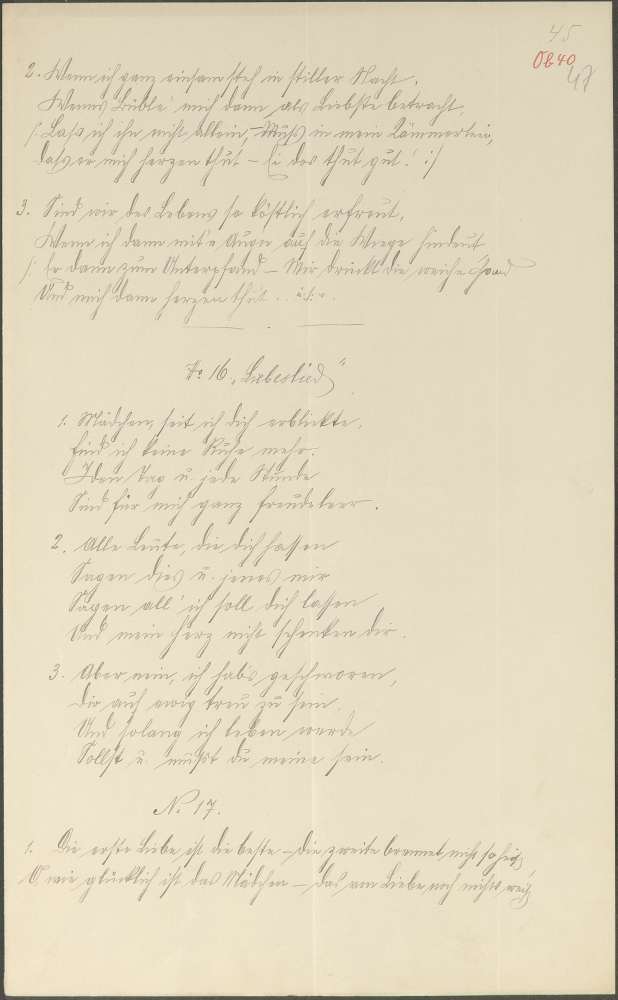 45
Ob 40
47
2. Wenn ich ganz einsam steh in stiller Nacht,
Wenns Büble mich dann als Liebste betracht,
/: Lass ich ihn nicht allein, – Muss in mein Kämmerlein,
dass er mich herzen thut – Ei das thut gut! :/
3. Sind wir des Lebens so köstlich erfreut,
Wenn ich dann mit'n Augen auf die Wiege hindeut
/: er dann zum Unterpfand – Mir drückt die weiche Hand
Und mich dann herzen thut . .
No 16 „Liebeslied"
1. Mädchen, seit ich dich erblickte,
Find ich keine Ruhe mehr.
Jeden Tag u. jede Stunde
Sind für mich ganz freudeleer.
2. Alle Leute, die dich hassen
Sagen dies u. jenes mir
Sagen all' ich soll dich lassen
Und mein Herz nicht schenken dir.
3. Aber nein, ich habs geschworen,
Dir auf ewig treu zu sein.
Und solang ich leben werde
Sollst u. musst du meine sein.
No 17.
1. Die erste Liebe ist die beste – die zweite brennet nicht so heiß,
O, wie glücklich ist das Mädchen – das von Liebe noch nichts weiß